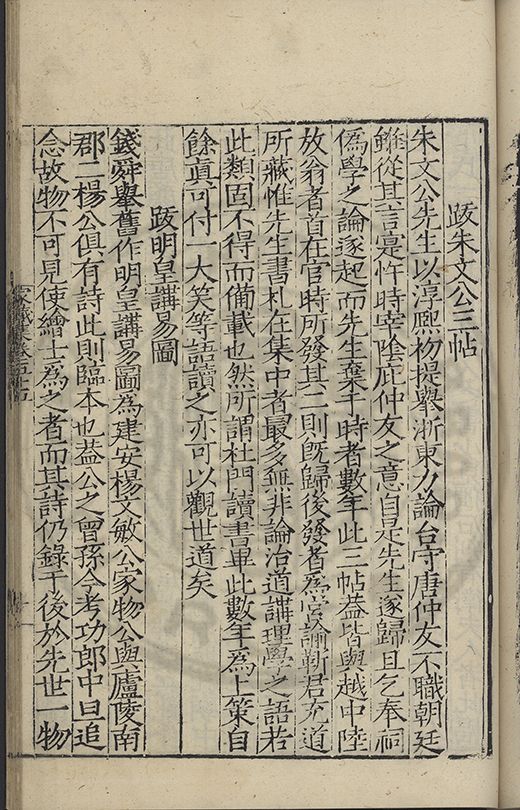 跋朱文公三帖
朱文公先生以淳熙初提舉浙東力論台守唐仲友不職朝廷
雖從其言寔忤時宰陰庇仲友之意自是先生遂歸且乞奉祠
偽學之論遂起而先生棄于時者數年此三帖葢皆與越中陸
放翁者首在官時所發其二則旣歸後發者為當論靳君充道
所藏惟先生書札在集中者最多無非論治道講理學之語若
此類固不得而備載也然所謂杜門讀書畢此數年為上策自
餘真可付一大笑等語讀之亦可以觀世道矣
跋明皇講易圖
錢舜舉舊作明皇講易圖為建安楊文敏公家物公與廬陵南
郡二楊公俱有詩此則臨本也葢公之曾孫今考功郎中旦追
念故物不可見使繪士為之者而其詩仍錄于後於先世一物